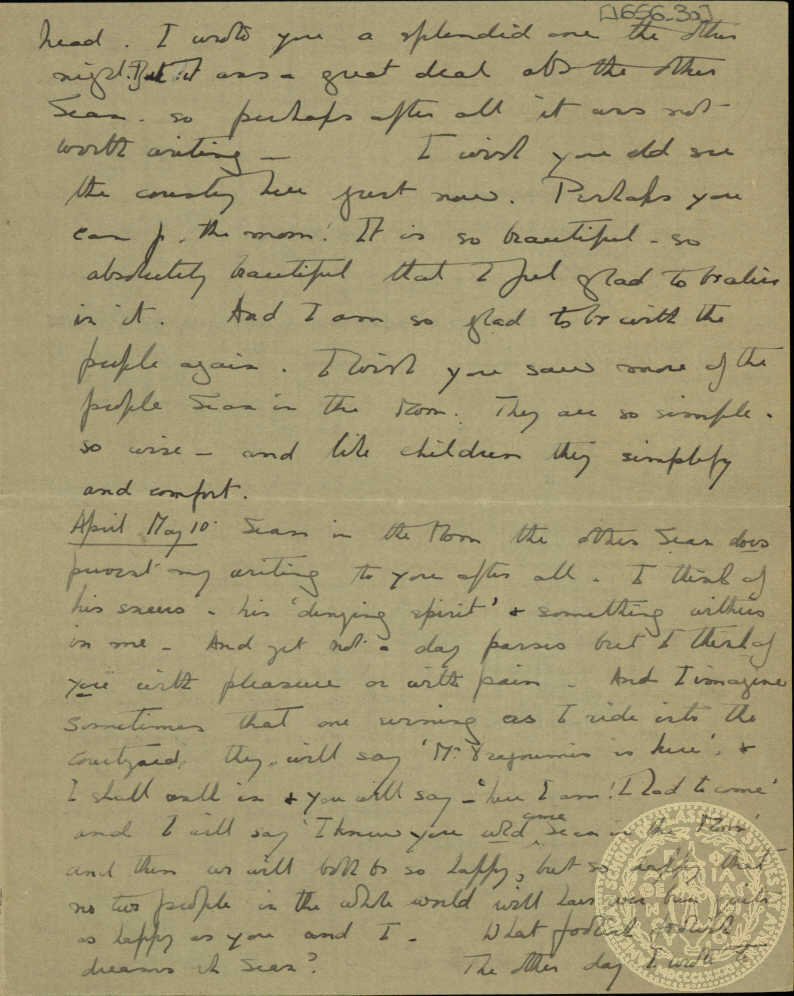 [1656.30]
head. I wrote you a splendid one the other
night. But it was a great deal abt the other
Sean. so perhaps after all it was not
worth writing — I wish you cld see
the country here just now. Perhaps you
can fr. the moon! It is so beautiful - so
absolutely beautiful that I feel glad to be alive
in it. And I am so glad to be with the
people again. I wish you saw more of the
people Sean in the Moon. They are so simple -
so wise - and like children they simplify
and comfort.
April May 10. Sean in the Moon the other Sean does
prevent my writing to you after all. I think of
his sneers - his 'denying spirit' & something withers
in me - And yet not a day passes but I think of
you with pleasure or with pain - And I imagine
sometimes that one evening as I ride into the
courtyard, they will say 'Mr Dragoumis is here', &
I shall walk in & you will say - 'here I am! I had to come'
and I will say 'I knew you wld come Sean in the Moon'
and then we will both be so happy, but so happy that
no two people in the whole world will have ever been quite
as happy as you and I - What foolish foolish
dreams eh Sean? The other day I wrote to